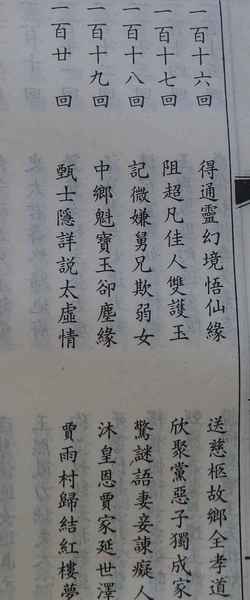 一百十六回 得通靈幻境悟仙緣 送慈柩故鄉全孝道
一百十七回 阻超凡佳人雙護玉 欣聚黨惡子獨成家
一百十八回 記微嫌舅兄欺弱女 驚謎語妻妾諫癡人
一百十九回 中鄉魁寶玉卻塵緣 沐皇恩賈家延世澤
一百廿回 甄士隱詳說太虛情 賈雨村歸結紅樓夢